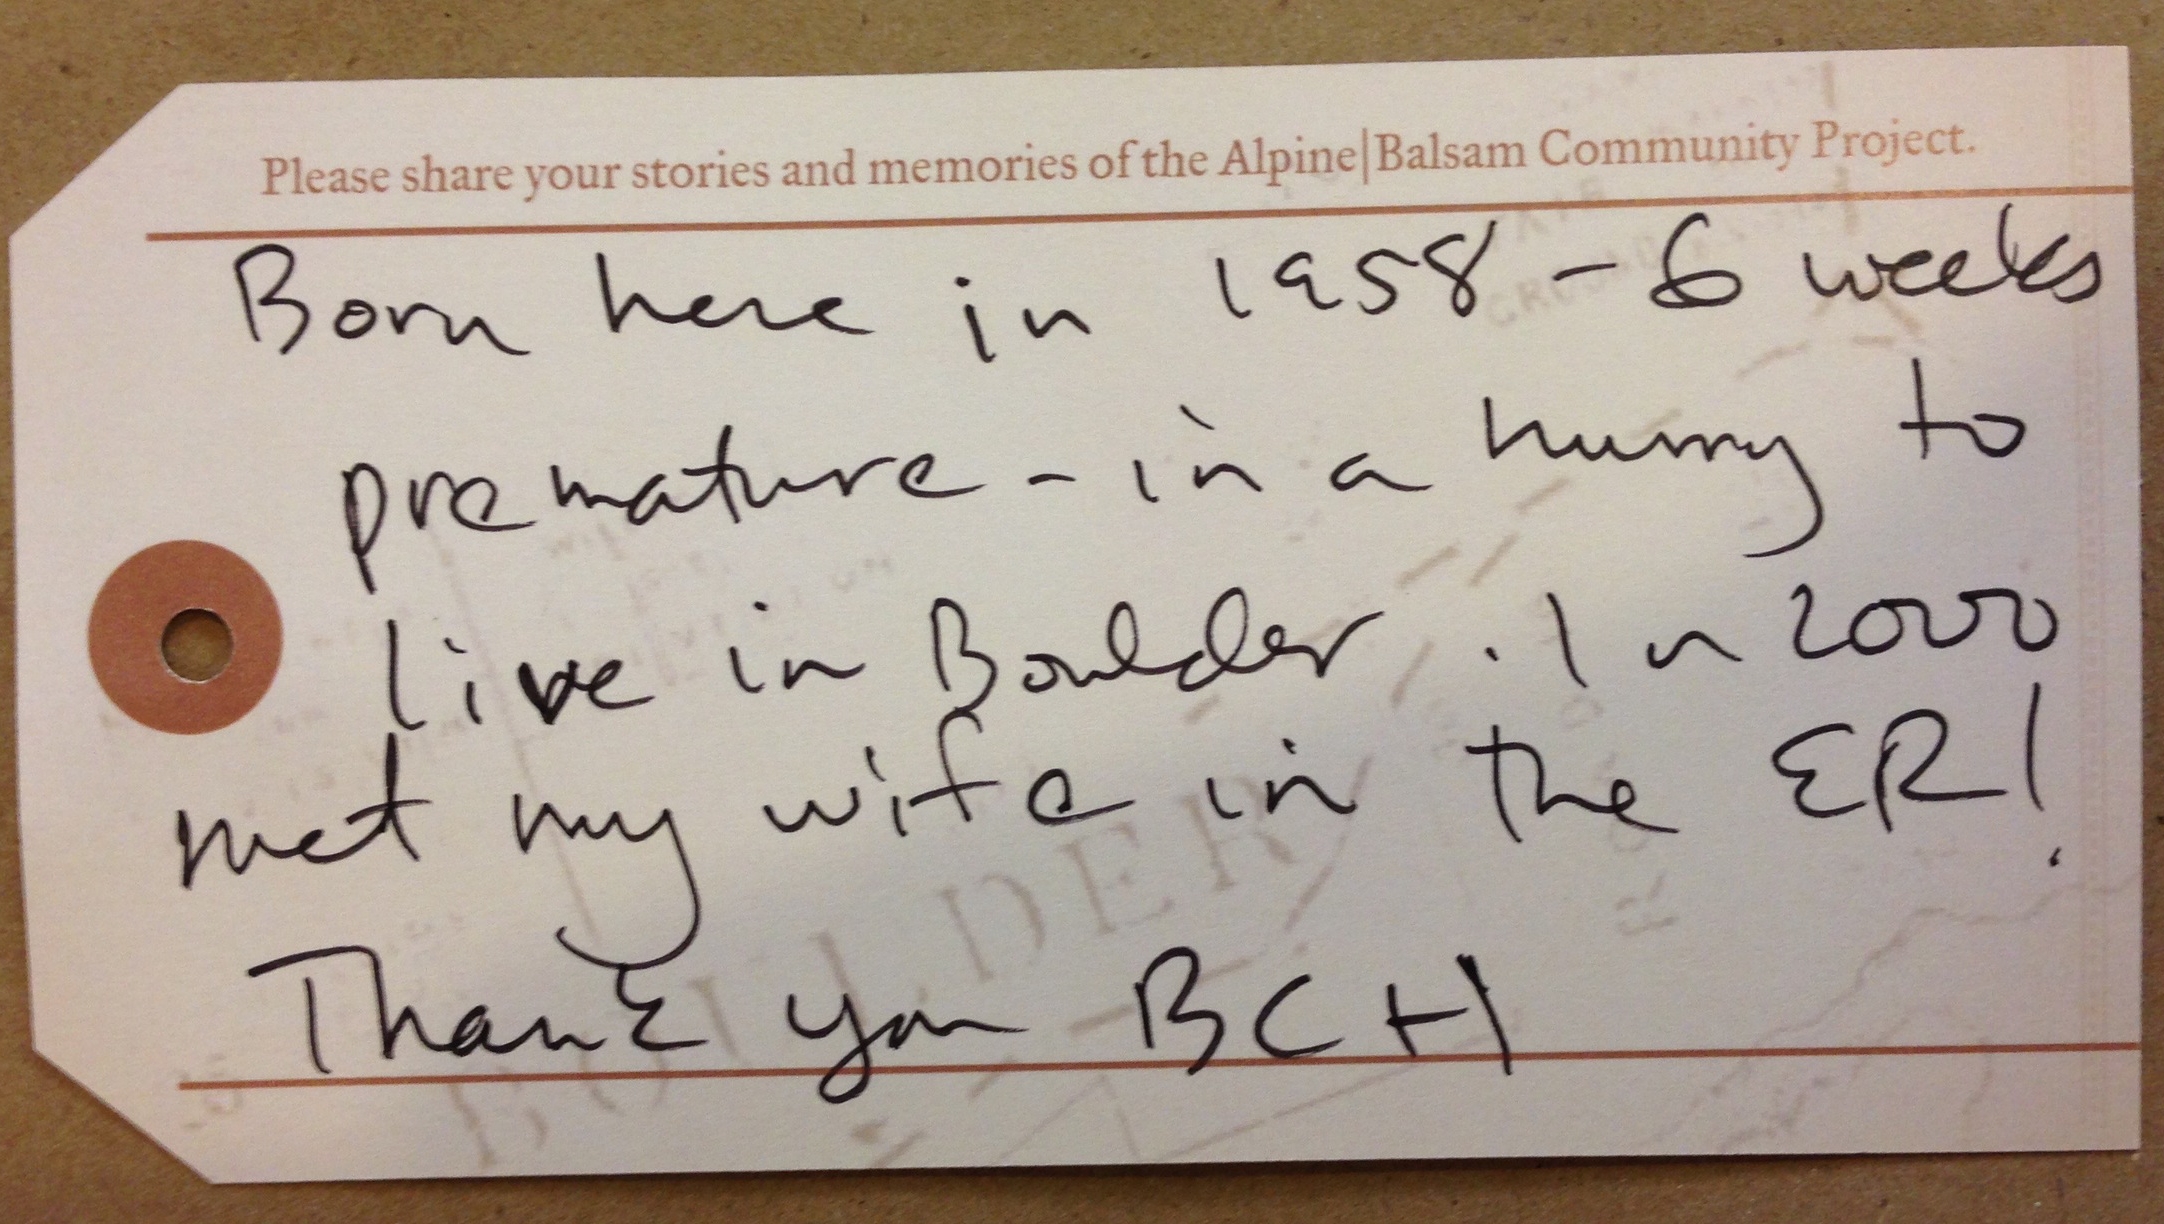 Please share your stories and memories of the Alpine|Balsam Community Project.
Born here in 1958 - 6 weeks
premature - in a hurry to
live in Boulder . In 2000
met my wife in the ER!
Thank you BCH
BOULDER